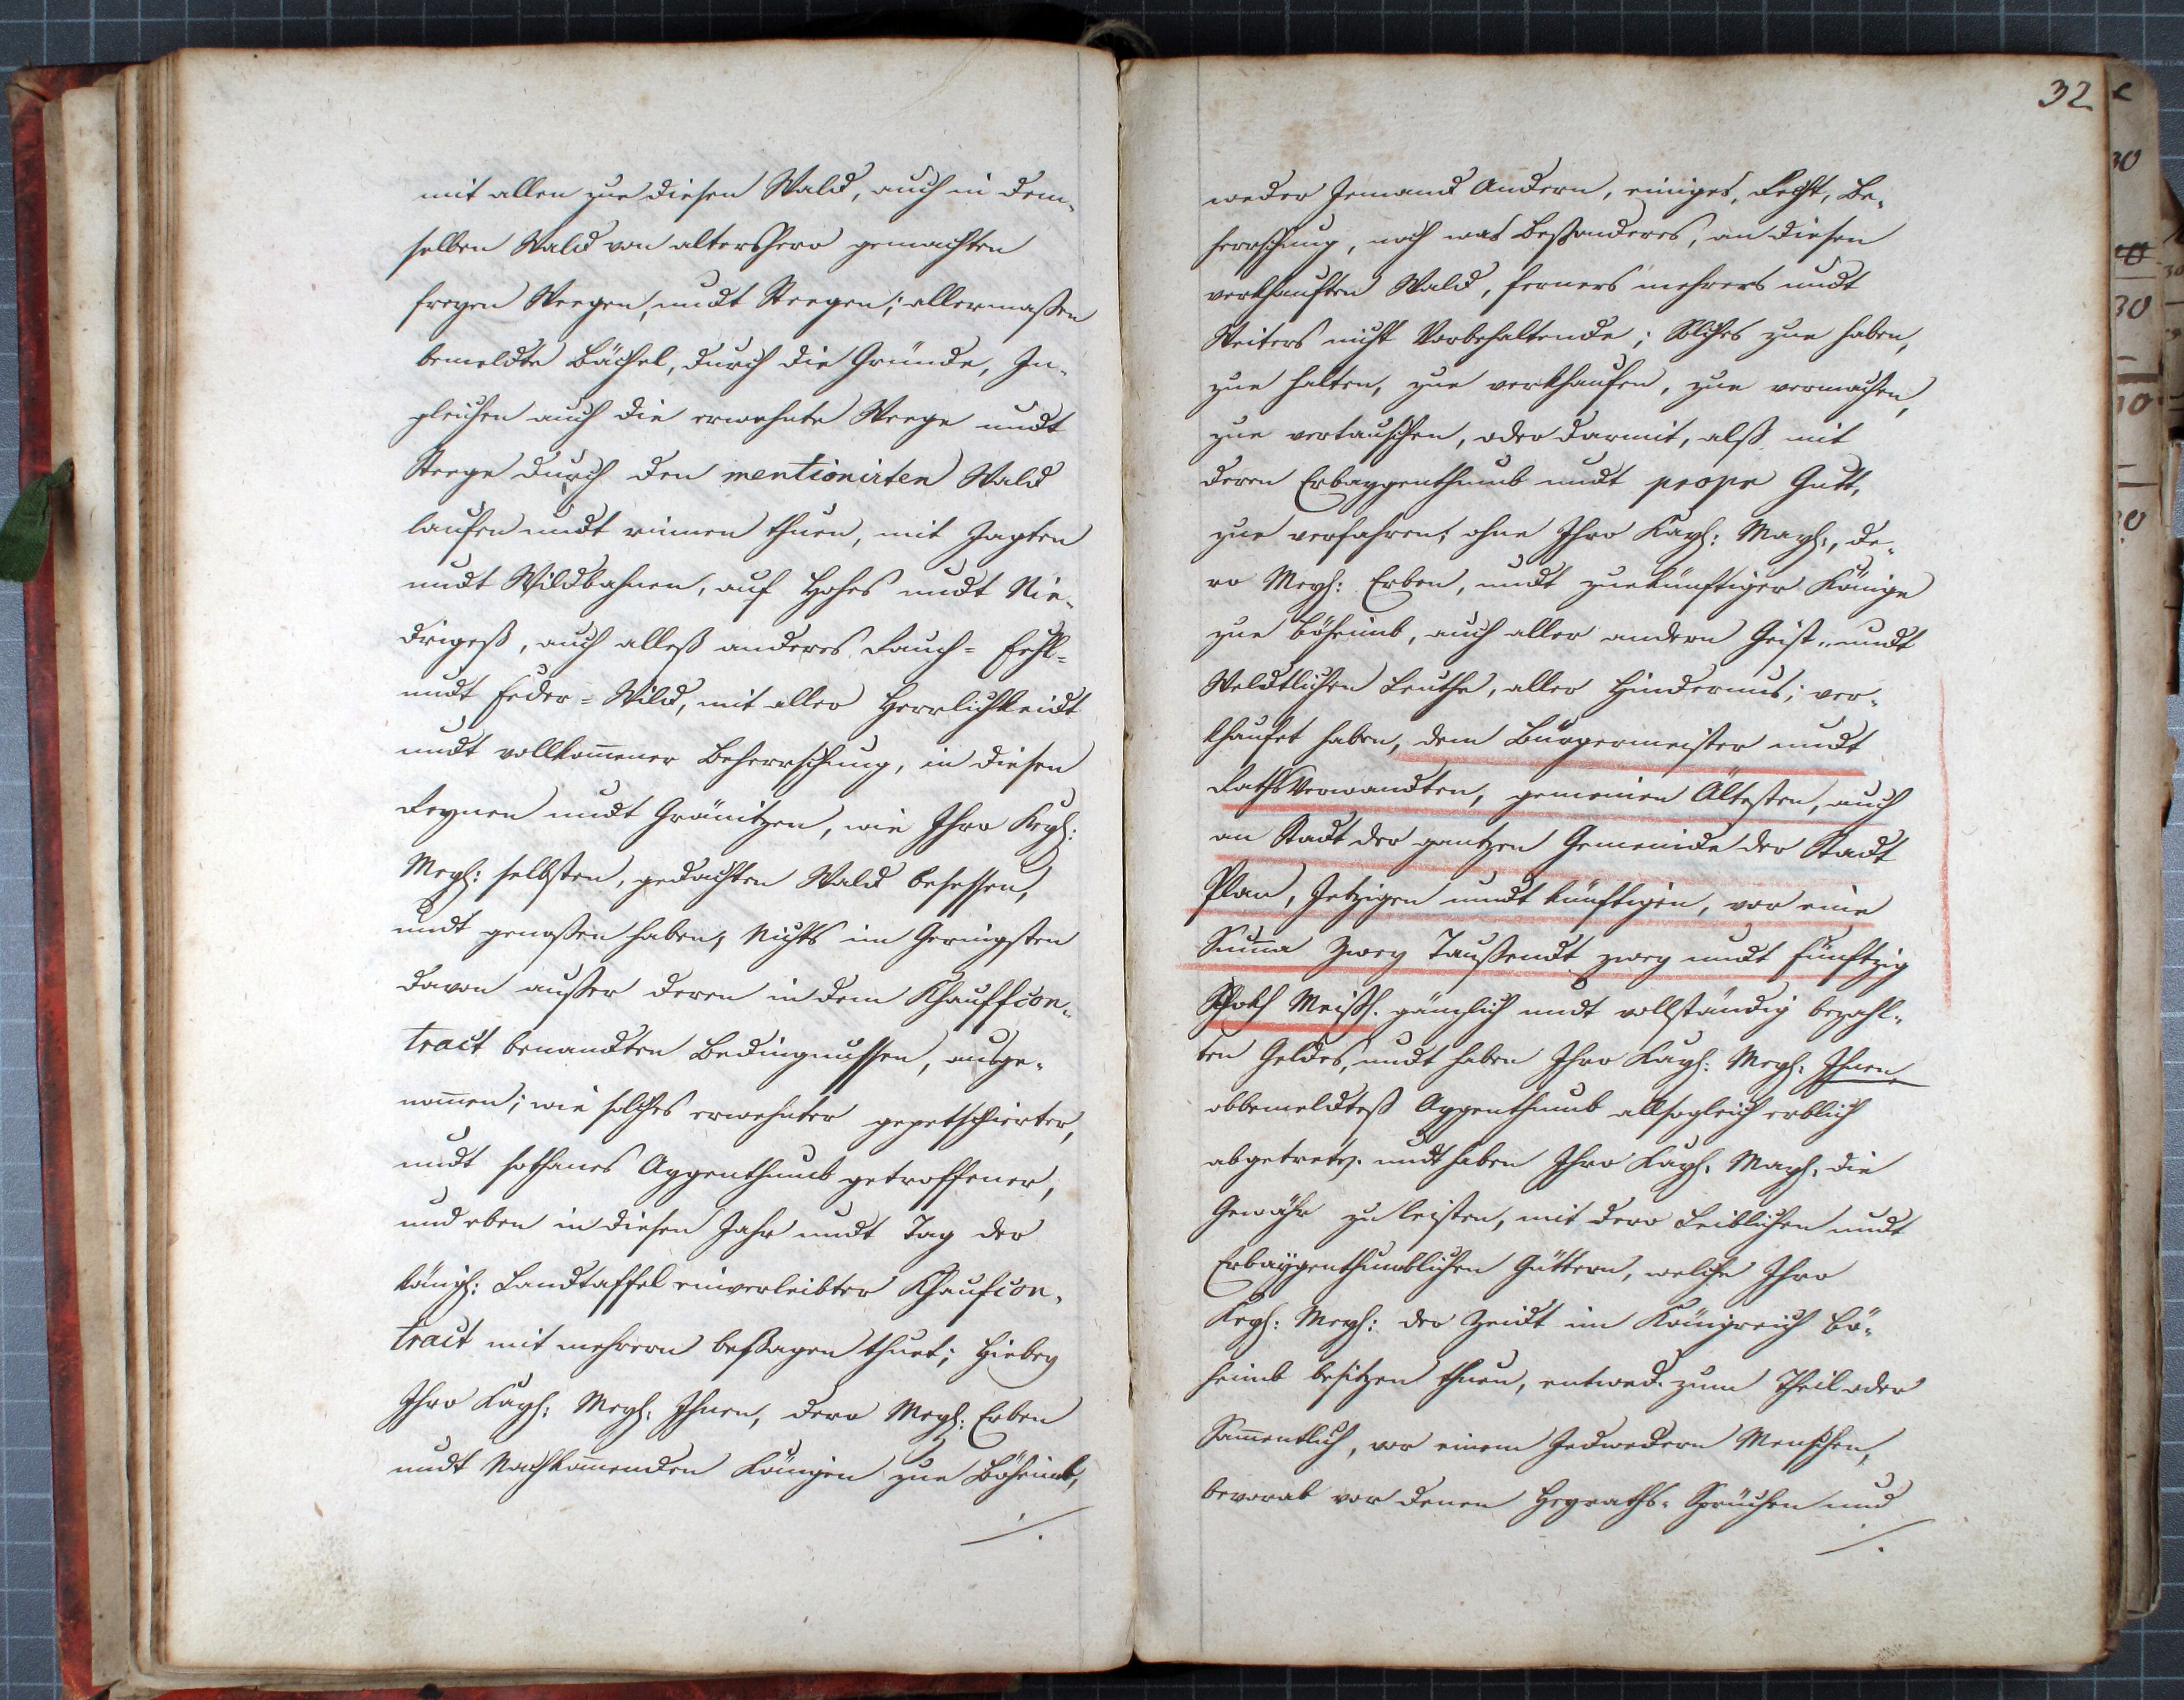 mit allen zue diesen Wald, auch in dem-
selben Wald von altershero gemachten
freyen Weegen, undt Steegen; allermaßen
bemeldte Bächel, durch die Gründe, In-
gleichen auch die erwehnte Weege undt
Steege durch den mentionirten Wald
laufen undt rinnen thuen, mit Jagten
undt Wildbahnen, auf Hohes undt Nie-
drigeß, auch alleß anderes Rauch=
undt Feder=Wild, mit aller Herrlichkeidt
undt vollkom̄ener Beherrschung, in diesen
Reynen undt Gränitzen, wie Ihro Kayß:
Mayß: selbsten, gedachten Wald besessen,
undt genoßen haben; Nichts im Geringsten
davon außer deren in dem Khauffcon-
tract benandten Bedingnussen, ausge-
nom̄en; wie solches erwehnter gepetschierter,
undt sothanes Aygenthumb getroffener,
und eben in diesen Jahr undt Tag der
königl: Landtaffel einverleibter Khaufcon-
tract mit mehrern beßagen thuet; hiebey
Ihro Kayß: Mayß: Ihnen, dero Mayß: Erben
undt Nachkom̄enden Königen zue Böheimb,
./.
32
weder Jemand Andern, einiges, Recht, Be-
herrschung, noch was Beßonderes, an diesen
verkhauften Wald, ferners mehrers undt
Weiters nicht Vorbehaltende; Solches zue haben,
zue halten, zue verkhaufen, zue vermachen,
zue vertauschen, oder darmit, alß mit
deren Erbaygenthumb undt propr Gutt,
zue verfahren; ohne Ihro Kayß: Mayß:, de-
ro Mayß: Erben, undt zuekünftiger Könige
zue Böheimb, auch aller andern Geist- undt
Weldtlichen Leuthe, aller Hindernus; ver-
khaufet haben, dem Bürgermeister undt
Rathsverwandten, gemeinen Ältesten, auch
an Stadt der gantzen Gemeinde der Stadt
Plan, Jetzigen undt künftigen, vor eine
Sum̄a Zwey Taußendt zwey undt fünftzig
Schokh Meißß. gänzlich undt vollständig bezahl-
ten Geldes, undt haben Ihro Kayß: Mayß: Ihnen
obbemeldteß Aygenthumb allsogleich erblich
abgetreten. undt haben Ihro Kayß: Mayß: die
Gewähr zu leisten, mit dero Leiblichen undt
Erbaygenthumblichen Güttern, welche Ihro
Kayß: Mayß: der Zeidt im Königreich Bö-
heimb besitzen thuen, entwed. zum Theil oder
Sam̄entlich, vor einem Jedwedern Menschen,
bevorab vor denen Heyraths-Sprüchen und
./.